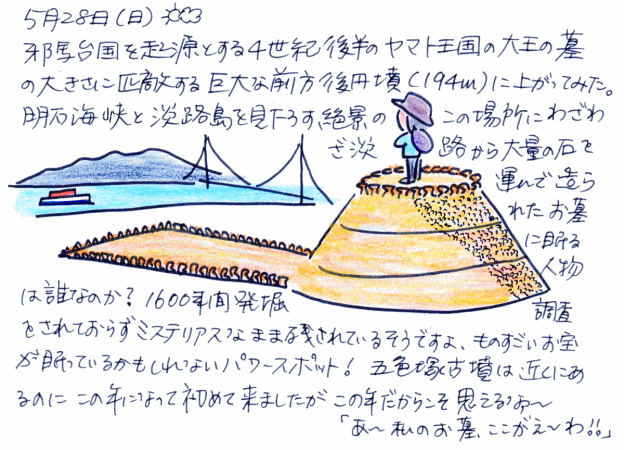 5月28日(日)
邪馬台国を起源とする4世紀後半のヤマト王国の大王の墓
の大きさに匹敵する巨大な前方後円墳(194m)に上がってみた。
明石海峡と淡路島を見下ろす、絶景の この場所にわざわ
ざ淡 路から大量の石を
運んで造ら
れたお墓
に眠る
人物
は誰なのか? 1600年間発掘 調査
をされておらずミステリアスなまま残されているそうですよ、ものすごいお宝
が眠っているかもしれないパワースポット! 五色塚古墳は近くにあ
るのに この年になって初めて来ましたが この年だからこそ思えるなぁ〜
「あ〜私のお墓、ここがえ〜わ!!」